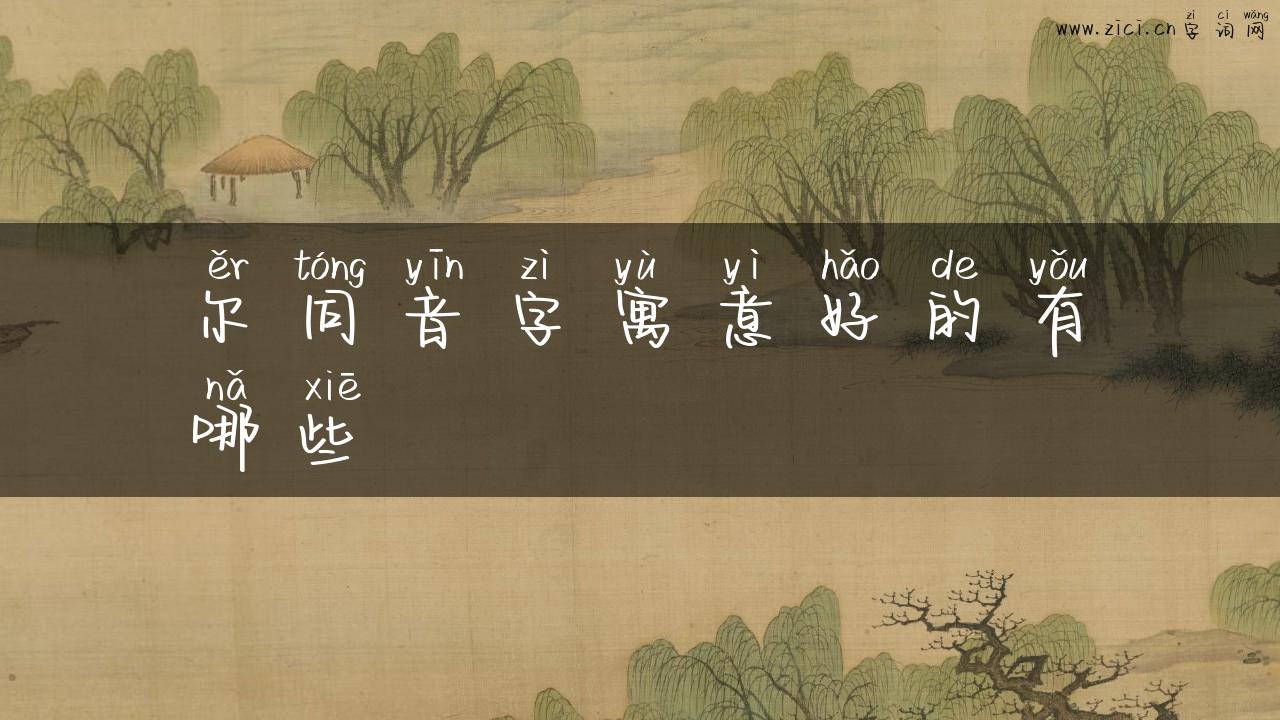 zì cí wǎng
www.zici.cn 字 词 网
ěr tóng yīn zì yù yì hǎo de yǒu
尔 同 音 字 寓 意 好 的 有
nǎ xiē
哪 些